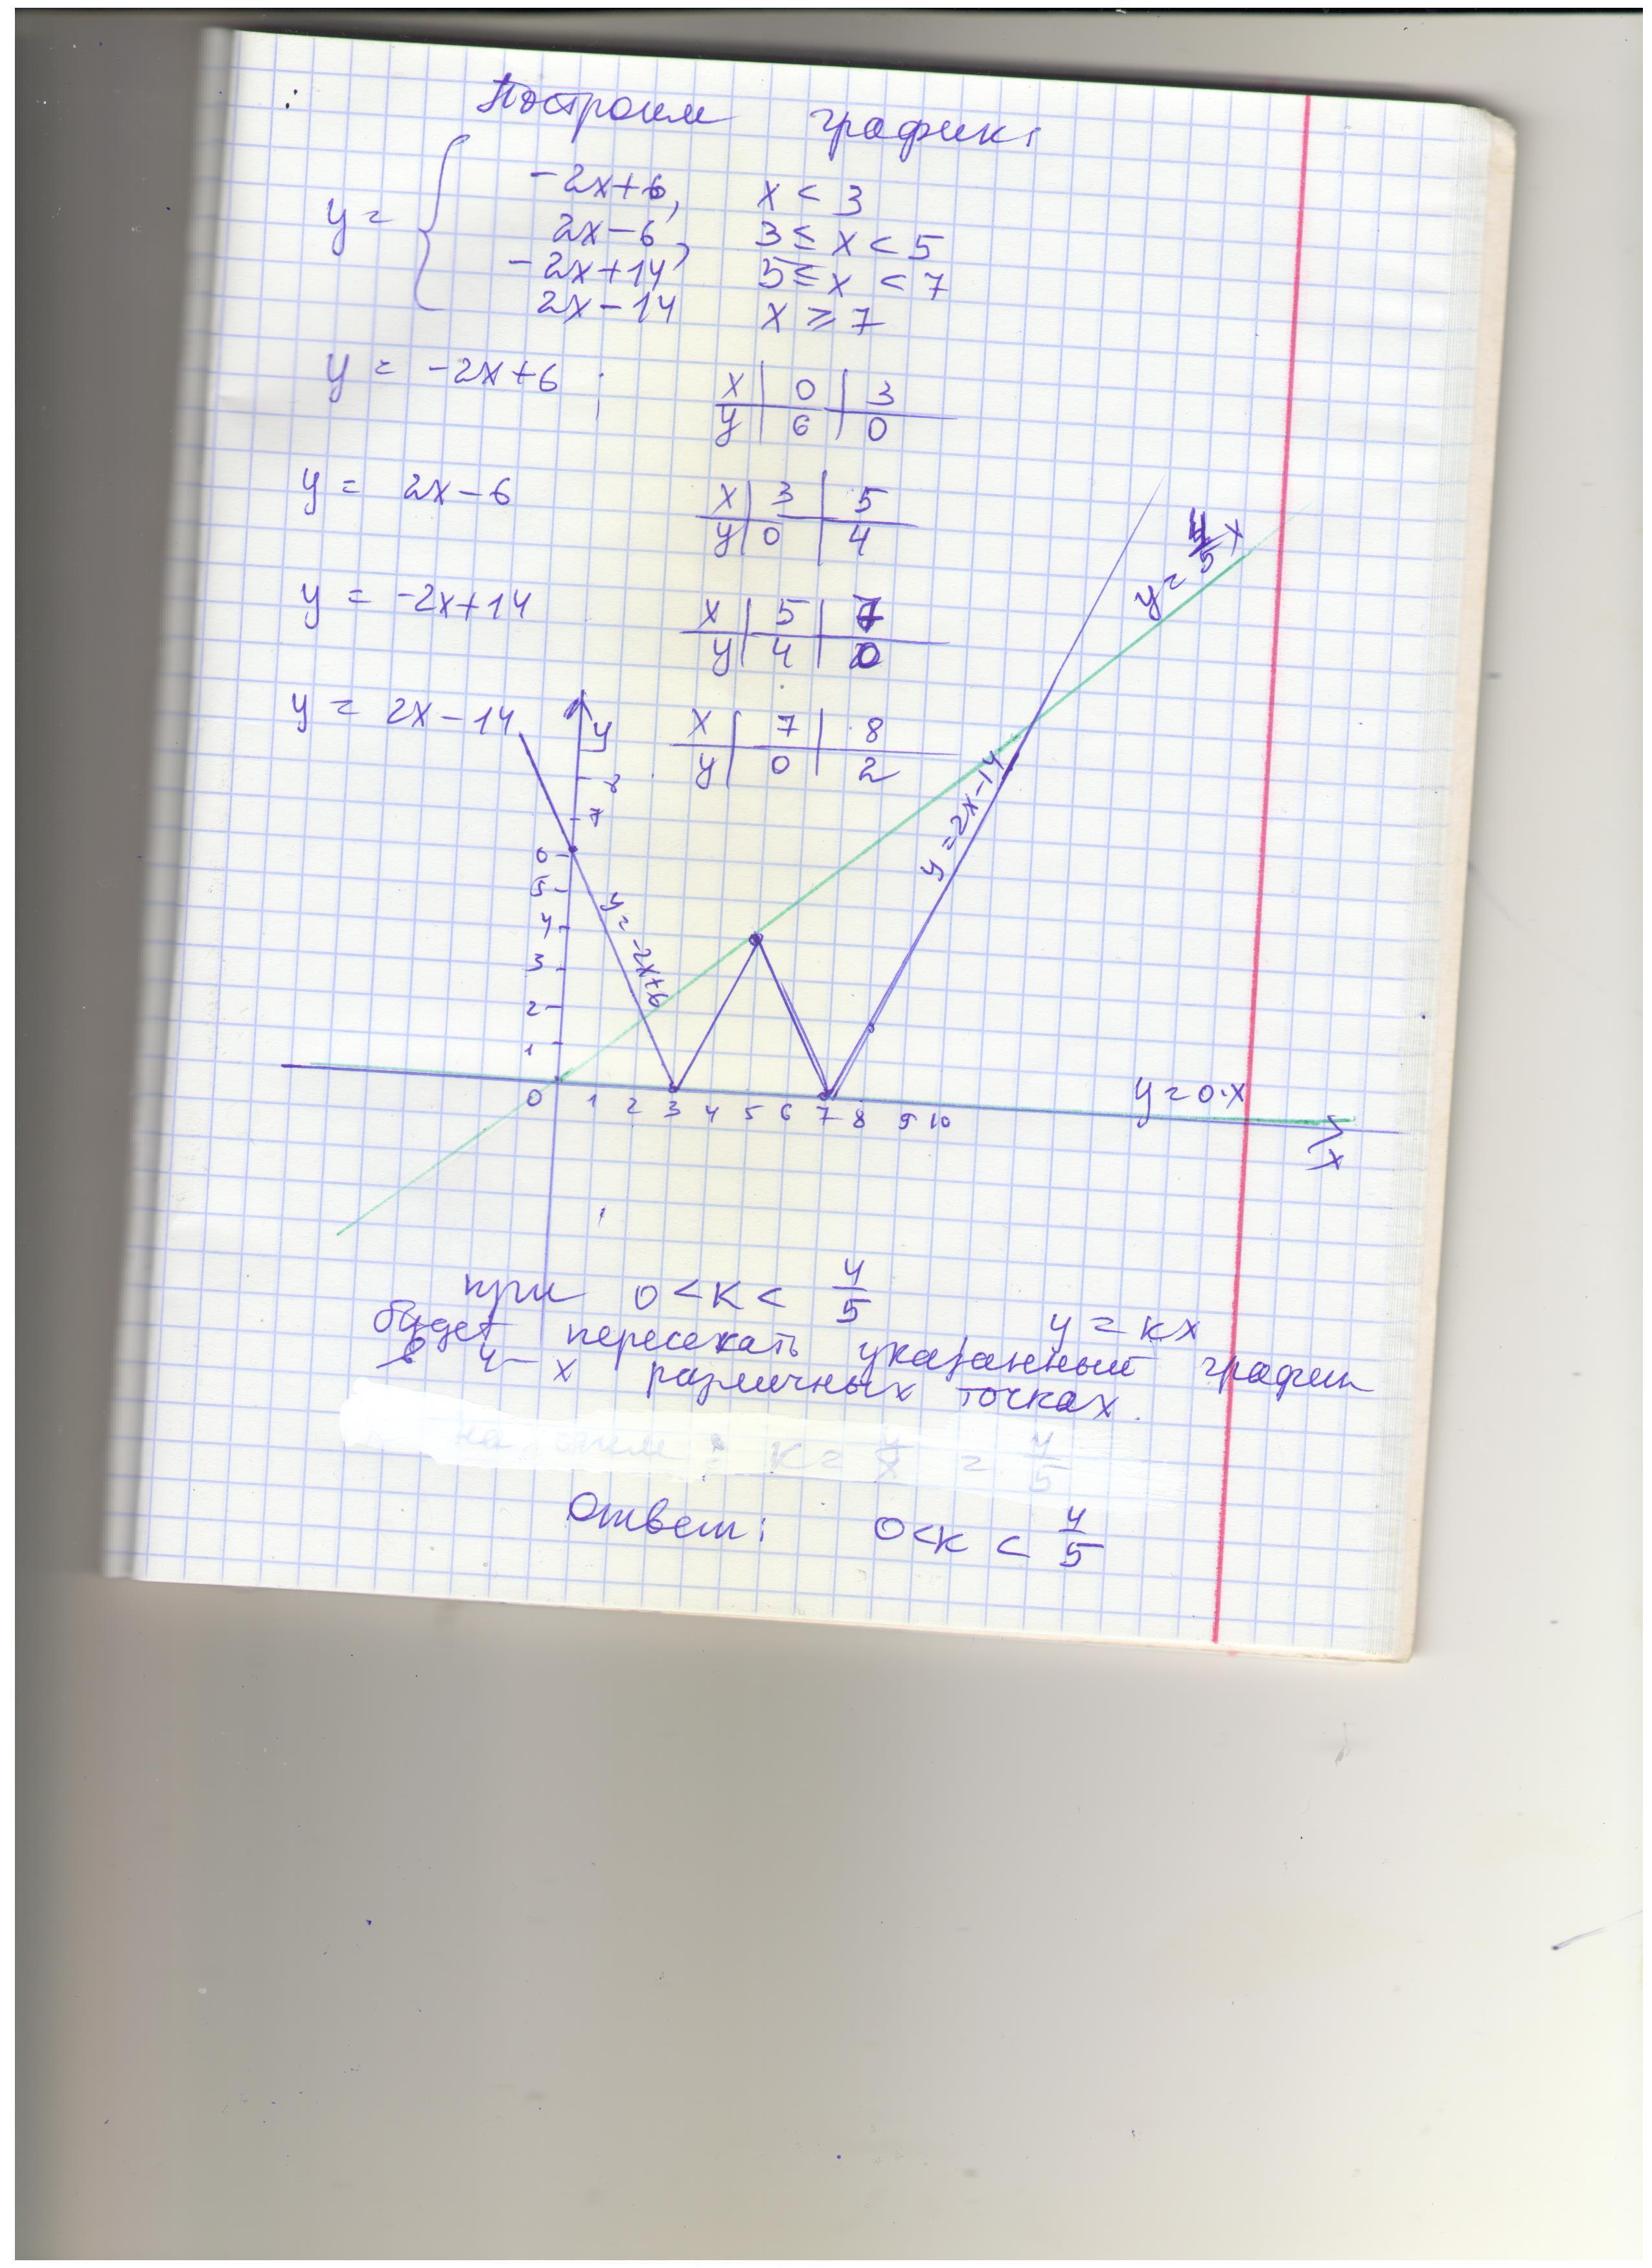 Построим график:
y = { -2x+6, x < 3
2x-6, 3 ≤ x < 5
-2x+14, 5 ≤ x < 7
2x-14 x ≥ 7
y = -2x+6 ; x | 0 | 3
y | 6 | 0
y = 2x-6 x | 3 | 5
y | 0 | 4
y = -2x+14 x | 5 | 7
y | 4 | 0
y = 2x-14 x | 7 | 8
y | 0 | 2
y = 4/5 x
y
8
7
6
5
4
3
2
1
y = -2x+6
y = 2x-14
y = 0·x
0 1 2 3 4 5 6 7 8 9 10
x
при 0 < k < 4/5 y = kx
будет пересекать указанный график
в 4-х различных точках.
k = y/x = 4/5
Ответ: 0 < k < 4/5